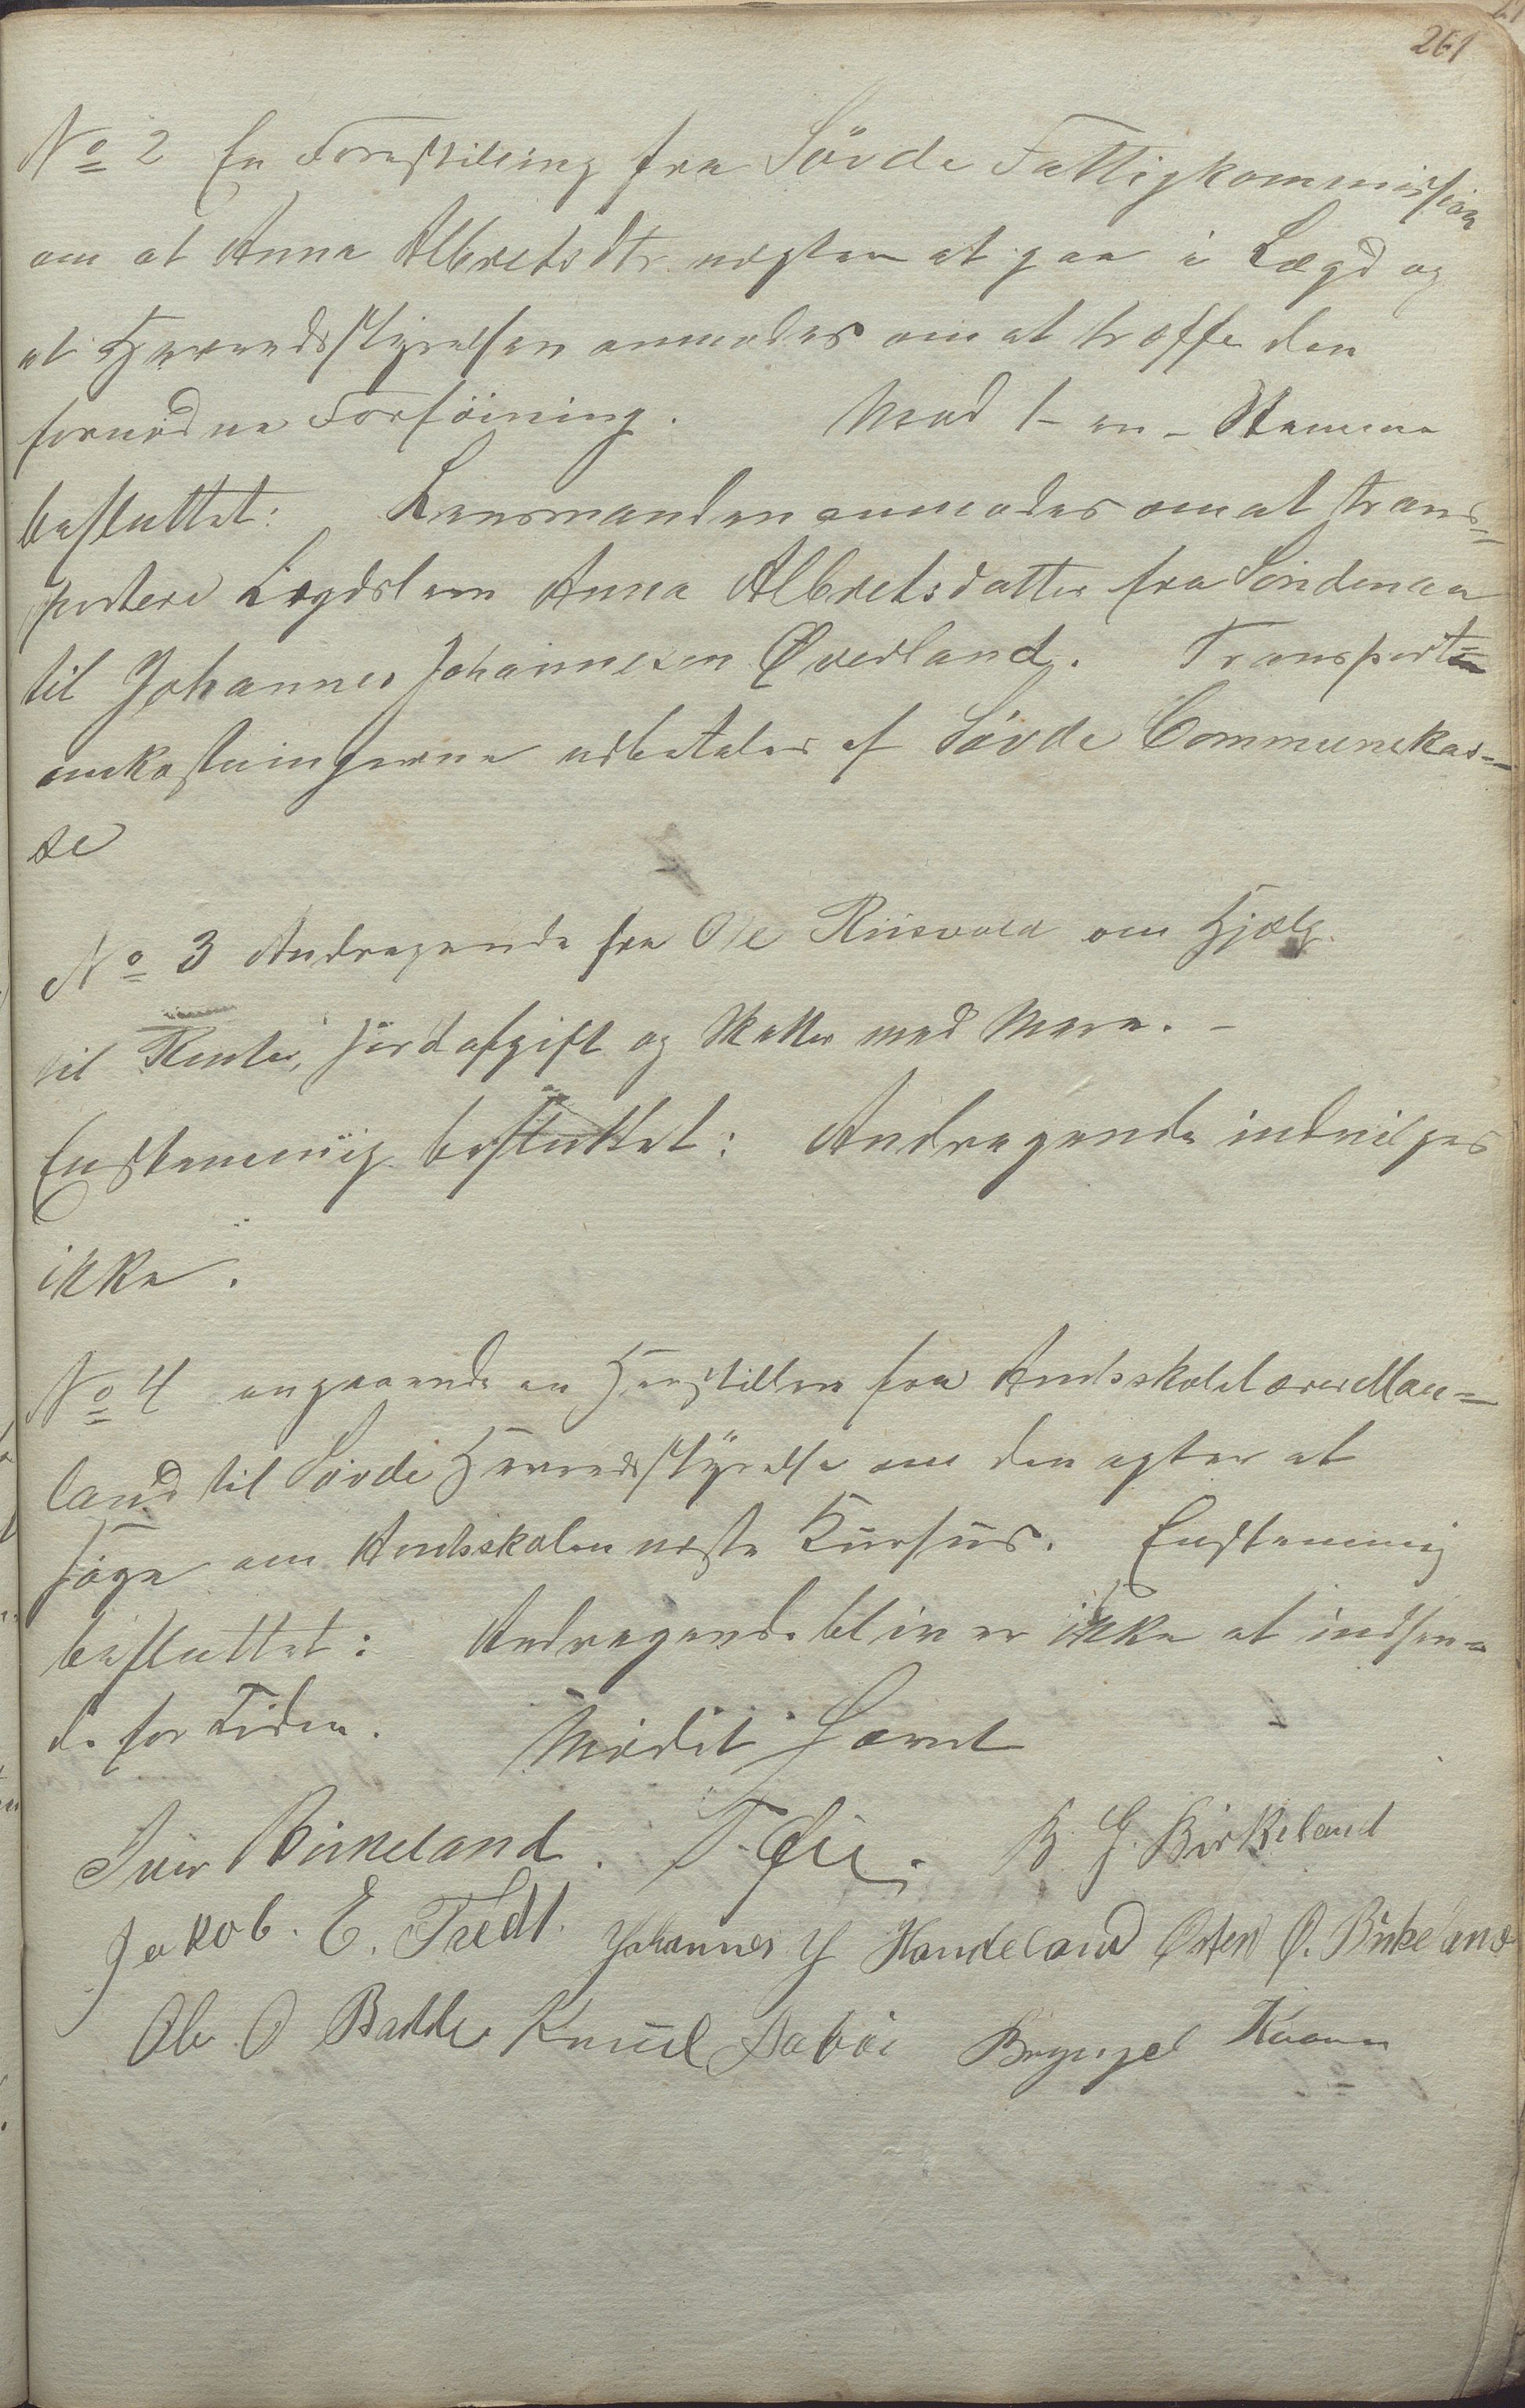 261
No 2 En Forestilling fra Søvde Fattigkommission
om at Anna Albretsdtr. nægter at gaa i Lægd og
at Herredsstyrelsen anmodes om at træffe den
fornødne Forføining. Mod 1 - en - Stemme
besluttet: Lensmanden anmodes om at trans-
portere Lægdslem Anna Albretsdatter fra Søndenaa
til Johannes Johannesen Øverland. Transport-
omkostningerne udbetales af Søvde Communekas-
se
No 3 Andragende fra Ole Riisvold om Hjælp
til Renter, Jordafgift og Skatter med Mere. -
Enstemmig besluttet: Andragende indvilges
ikke.
No 4 angaaende en Henstillen fra Amtsskolelærer Mæ-
land til Søvde Herredsstyrelse om den agter at
søge om Amtsskolen næste Kursus. Enstemmig
besluttet: Andragende bliver ikke at indsen-
de for Tiden. Mødet hævet
Iver Birkeland. T. Øie. B. G. Birkeland
Jakob. E. Tredt. Johannes J Handeland Østen Ø. Birkeland
Ole O Badde Knud Aabøe Bryngel